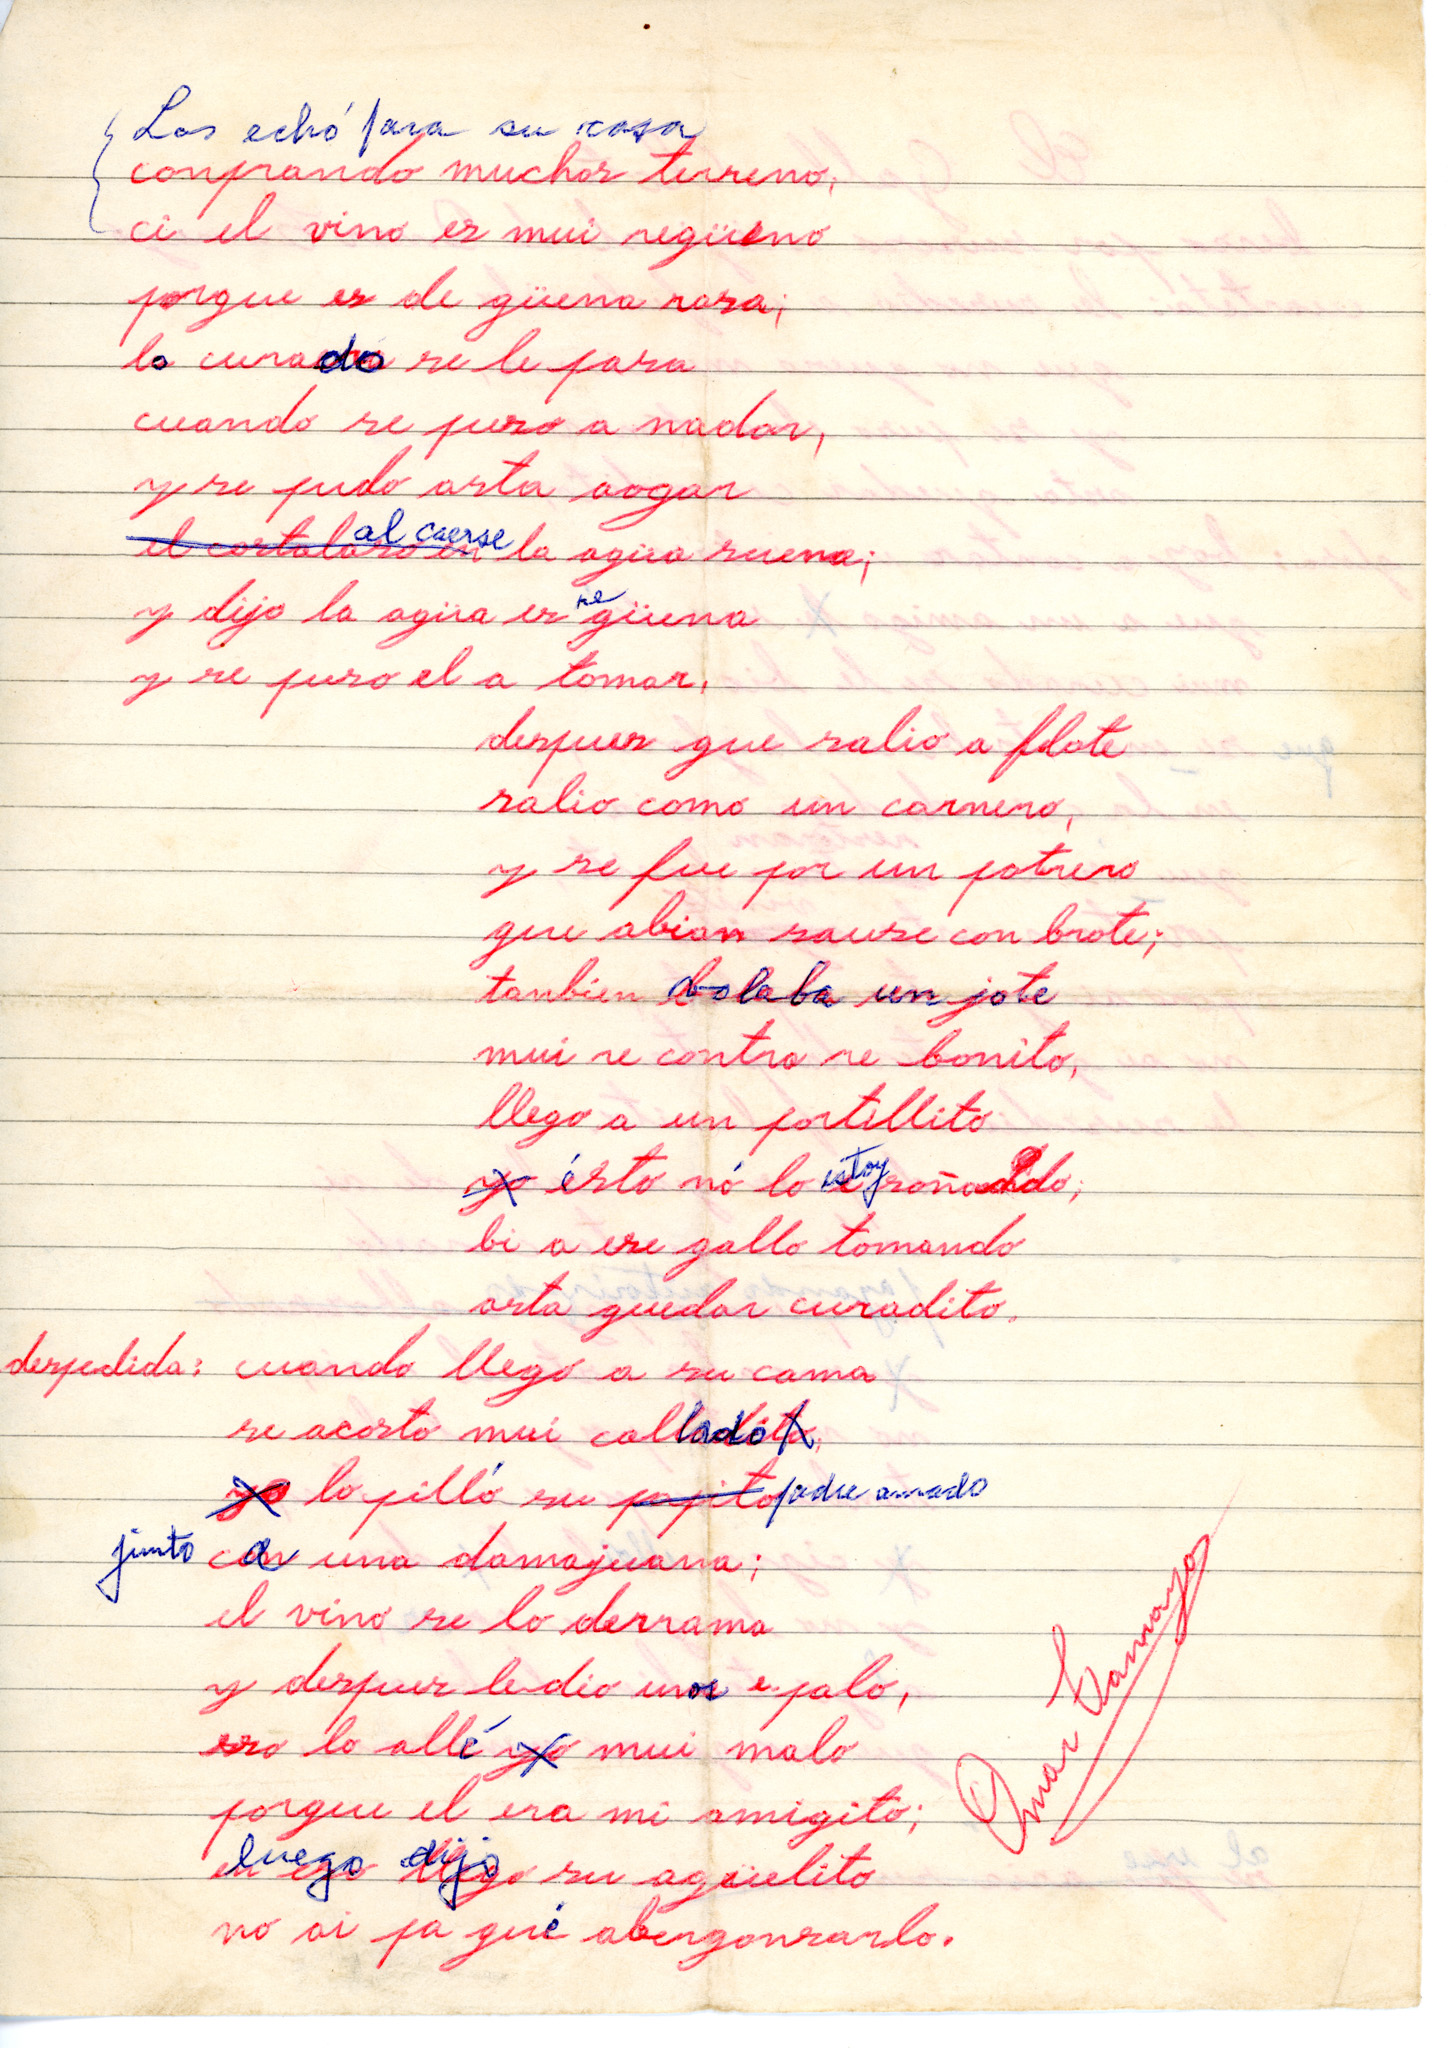 Los echó para su casa
conprando muchos terreno,
ci el vino es mui regüeno
porque es de güena rasa;
lo curado se le pasa
cuando se puso a nadar,
y se pudo asta aogar
el costalaso en al caerse la agua suena;
y dijo la agua es re güena
y se puso el a tomar.
despues que salio a flote
salio como un carnero,
y se fue por un potrero
que abian sause con brote;
tanbien bolaba un jote
mui re contra re bonito,
llego a un portillito
yo ésto nó lo estoy soñando;
bi a ese gallo tomando
asta quedar curadito.
despedida: cuando llego a su cama
se acosto mui callado
yo lo pilló su papito padre amado
junto a una damajuana;
el vino se lo derrama
y despues le dio unos e palo,
eso lo allé yo mui malo
porque el era mi amigito;
luego dijo su agüelito
no ai pa qué abergonsarlo.
Omar Tamayo